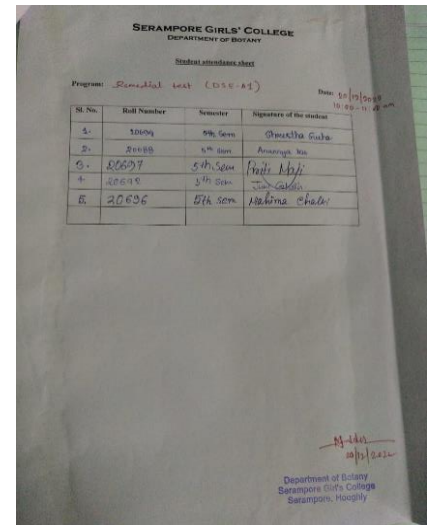 SERAMPORE GIRLS' COLLEGE
DEPARTMENT OF BOTANY
Student attendance sheet
Program: Remedial test (DSE-A1)
Date:
Sl. No. Roll Number Semester Signature of the student
1. 5th Sem Guha
2. 20688 5th Sem
3. 20697 5th Sem Priti Maji
4. 20692 5th Sem
5. 20696 5th sem Mahima
Department of Botany
Serampore Girl's College
Serampore, Hooghly